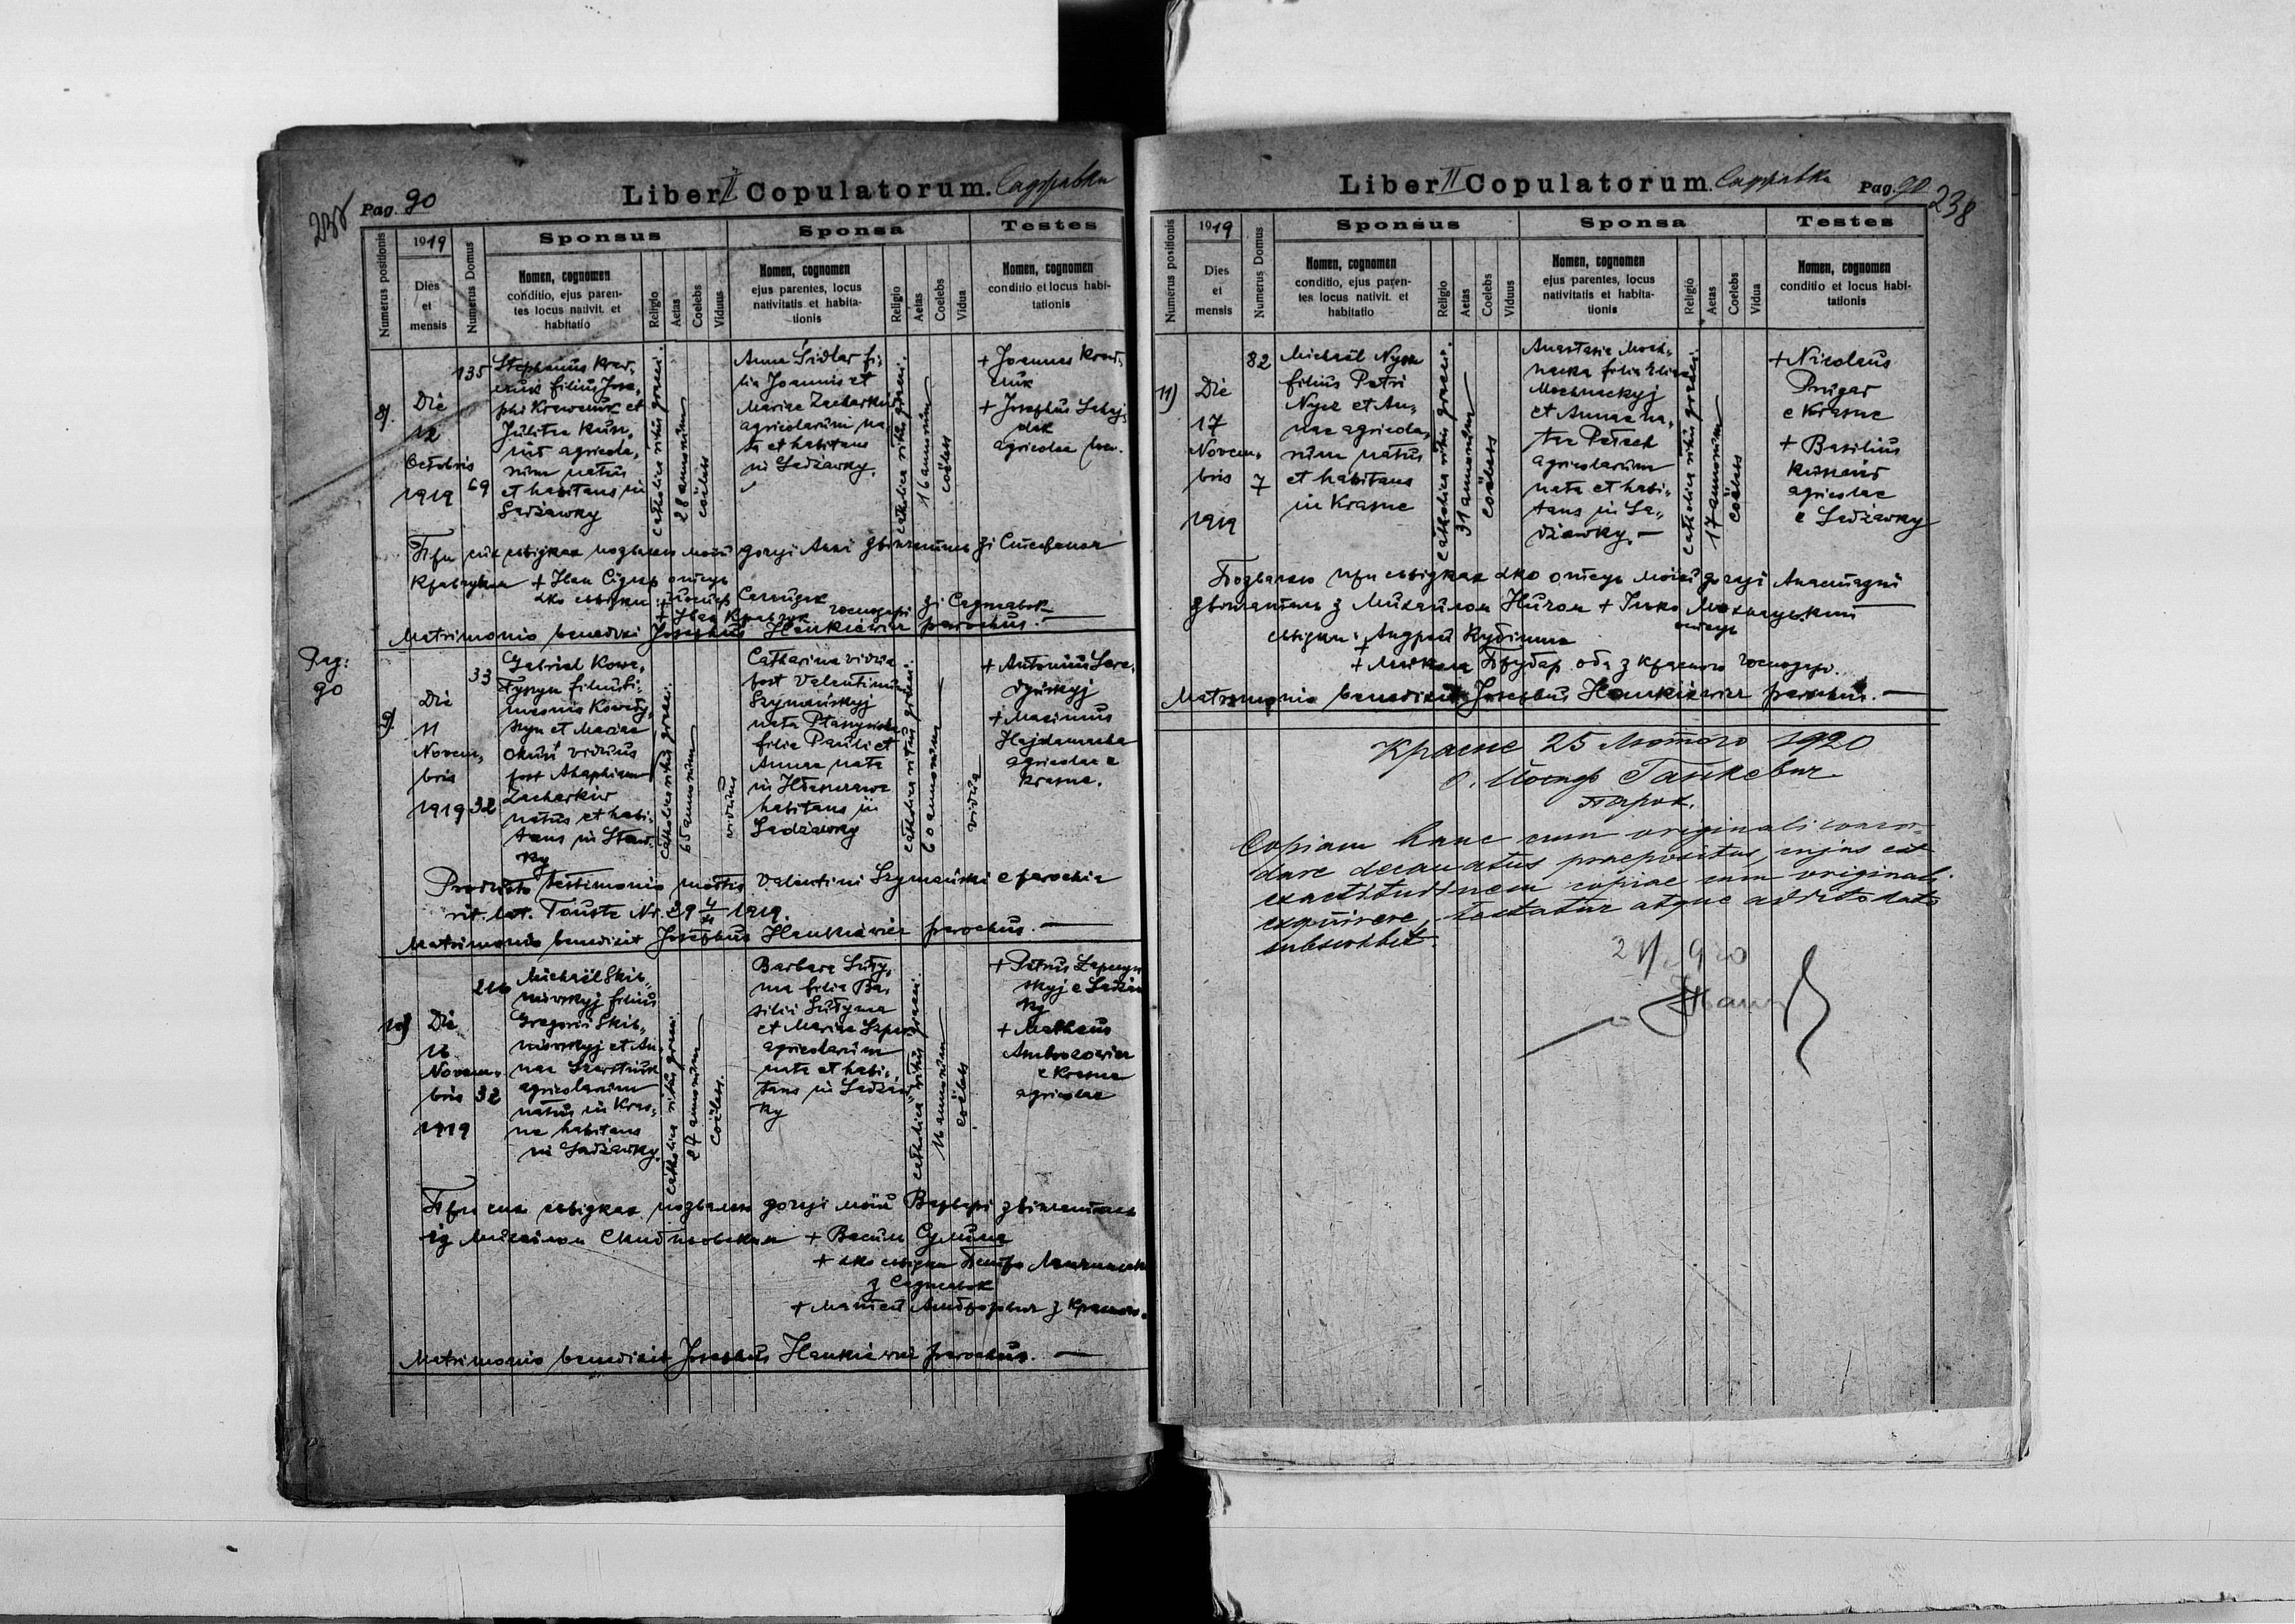 238
Pag. 90
Liber II Copulatorum. Саджавки
Numerus positionis
1919
Dies
et
mensis
Numerus Domus
Sponsus
Nomen, cognomen
conditio, ejus paren-
tes locus nativit. et
habitatio
Religio
Aetas
Coelebs
Viduus
Sponsa
Nomen, cognomen
ejus parentes, locus
nativitatis et habita-
tionis
Religio
Aetas
Coelebs
Vidua
Testes
Nomen, cognomen
conditio et locus habi-
tationis
8).
Die
12
Octobris
1919
135
69
Stephanus Kraw„
czuk filius Jose„
phi Krawczuk et
Julitae
agricola„
rum natus
et habitans in
Sadżawky
catholica ritus graeci.
28 annorum
coëlebs
Anna Sidlar fi„
lia Joannis et
Mariae Zacharków
agricolarum na„
ta et habitans
in Sadżawky.
catholica ritus graeci.
16 annorum
coëlebs
+ Joannes Kraw„
czuk
+ Josephus
agricolae
При сих свідках позваляю моїй доньці Анні звінчатись зі Стефаном
Кравчуком + Іван Сідляр отець
яко свідки: + Йосиф
+ Іван Кравчук господарі зі Саджавок
Matrimonio benedixi Josephus Hankiewicz parochus. —
Pag:
90
9).
Die
11
Novem„
bris
1919
33
32
Gabriel Kowa„
filius Si„
meonis
et Mariae
viduus
post Ahaphiam
Zacharków
natus et habi„
tans in Staw„
ky
catholica ritus graeci.
65 annorum
viduus
Catharina vidua
post Valentinum
Szymańskyj
nata
filia Pauli et
Annae nata
in
habitans in
Sadżawky
catholica ritus graeci.
60 annorum
vidua
+ Antonius
+ Maximus
Hajdamacha
agricolae e
Krasne.
Producto testimonio mortis Valentini Szymański e parochia
rit. lat. Touste Nr. 29 1919.
Matrimonio benedixit Josephus Hankiewicz parochus. —
10)
Die
16
Novem„
bris
1919
216
32
Michaël Skib„
niowskyj filius
Gregorii Skib„
niowskyj et An„
nae
agricolarum
natus in Kras„
ne habitans
in Sadżawky.
catholica ritus graeci.
27 annorum
coëlebs.
Barbara Suły„
ma filia Ba„
silii Sułyma
et Mariae
agricolarum
nata et habi„
tans in Sadżaw„
ky
catholica ritus graeci.
16 annorum
coëlebs
+ Petrus
skyj e Sadżaw
ky
+ Matheus
Ambrozowicz
e Krasne
agricolae
При сих свідках позваляю доньці моїй Варварі звінчатись
із Михайлом Скибньовским + Василь Сулима
+ яко свідки Петро
з Саджавок
+ Матей Амброзович з Красного.
Matrimonio benedixit Josephus Hankiewicz parochus. —
Liber II Copulatorum. Саджавки
Pag. 90
238
Numerus positionis
1919
Dies
et
mensis
Numerus Domus
Sponsus
Nomen, cognomen
conditio, ejus paren-
tes locus nativit. et
habitatio
Religio
Aetas
Coelebs
Viduus
Sponsa
Nomen, cognomen
ejus parentes, locus
nativitatis et habita-
tionis
Religio
Aetas
Coelebs
Vidua
Testes
Nomen, cognomen
conditio et locus habi-
tationis
11)
Die
17
Novem„
bris
1919
82
7
Michaël Nycz
filius Petri
Nycz et An„
nae agricola„
rum natus
et habitans
in Krasne
catholica ritus graeci.
31 annorum
coëlebs
Anastasia Moch„
nacka filia Eliae
Mochnackyj
et Annae na„
tae Petrech
agricolarum
nata et habi„
tans in Sa„
dżawky. —
catholica ritus graeci.
17 annorum
coëlebs
+ Nicolaus
Prugar
e Krasne
+ Basilius
agricolae
e Sadżawky
Позваляю при свідках яко отець моїй доньці Анастазиї
звінчатись з Михайлом Ничом + Ілько Мохнацький
отець
свідки: + Андрій
+ Микола Пругар оба з Красного господарі.
Matrimonio benedixit Josephus Hankiewicz parochus. —
Красне 25 Лютого 1920
о. Йосиф Ганкевич
Парох.
Copiam hanc cum originali concor„
dare decanatus praepositus, cujus est
exactitudinem copiae cum originali
exquirere, testatur atque addito dato
subscribit.